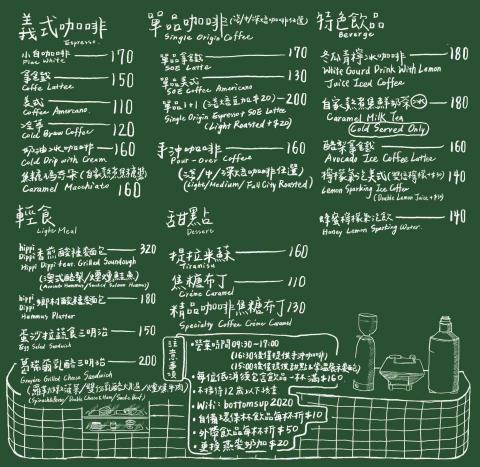 義式咖啡
Espresso
小白咖啡 170
Flat White
拿鐵 150
Coffee Lattee
美式 110
Coffee Americano
冷萃 120
Cold Brew Coffee
奶油冰咖啡 160
Cold Drip with Cream
焦糖瑪奇朵(自家熬煮焦糖醬)
Caramel Macchiato 160
單品咖啡(淺/中/深焙咖啡任選)
Single Origin Coffee
單品拿鐵 170
SOE Latte
單品美式 130
SOE Coffee Americano
單品1+1 (淺焙豆加$20) 200
Single Origin Espresso + SOE Latte
(Light Roasted +$20)
手沖咖啡 160
Pour-Over Coffee
(淺/中/深焙咖啡任選)
(Light/Medium/Full City Roasted)
特色飲品
Beverge
冬瓜青檸冰咖啡 180
White Gourd Drink With Lemon
Juice Iced Coffee
自家熬煮焦糖奶茶(冰) 180
Caramel Milk Tea
(Cold Served Only)
酪梨拿鐵 160
Avocado Ice Coffee Latte
檸檬氣泡美式 140
Lemon Sparking Ice Coffee
(Double Lemon Juice +$10)
蜂蜜檸檬氣泡飲 140
Honey Lemon Sparking Water.
輕食
Light Meal
hippi Dippi 香煎酸種麵包 320
Hippi Dippi feat. Grilled Sourdough
(澳式酪梨/煙燻鮭魚)
(Avocado Hummus/Smoked Salmon Hummus)
hippi Dippi 鄉村酸種麵包 180
Hummus Platter
蛋沙拉蔬食三明治 150
Egg Salad Sandwich
葛瑞爾乳酪三明治 200
Gruyère Grilled Cheese Sandwich
(羅勒菠菜/雙倍乳酪火腿/煙燻牛肉)
(Spinach & Honey/Double Cheese & Ham/Smoke Beef)
甜點
Dessert
提拉米蘇 160
Tiramisu
焦糖布丁 110
Crème Caramel
精品咖啡焦糖布丁 130
Specialty Coffee Crème Caramel
注意事項
•營業時間09:30-17:00
(16:30後僅提供手沖咖啡)
(15:00後僅提供甜點
•每位低消須包含飲品一杯滿$160
•不接待12歲以下孩童
•Wifi: bottomsup2020
•自備環保杯飲品每杯折$10
•外帶飲品每杯折$50
•更換燕麥奶加$20